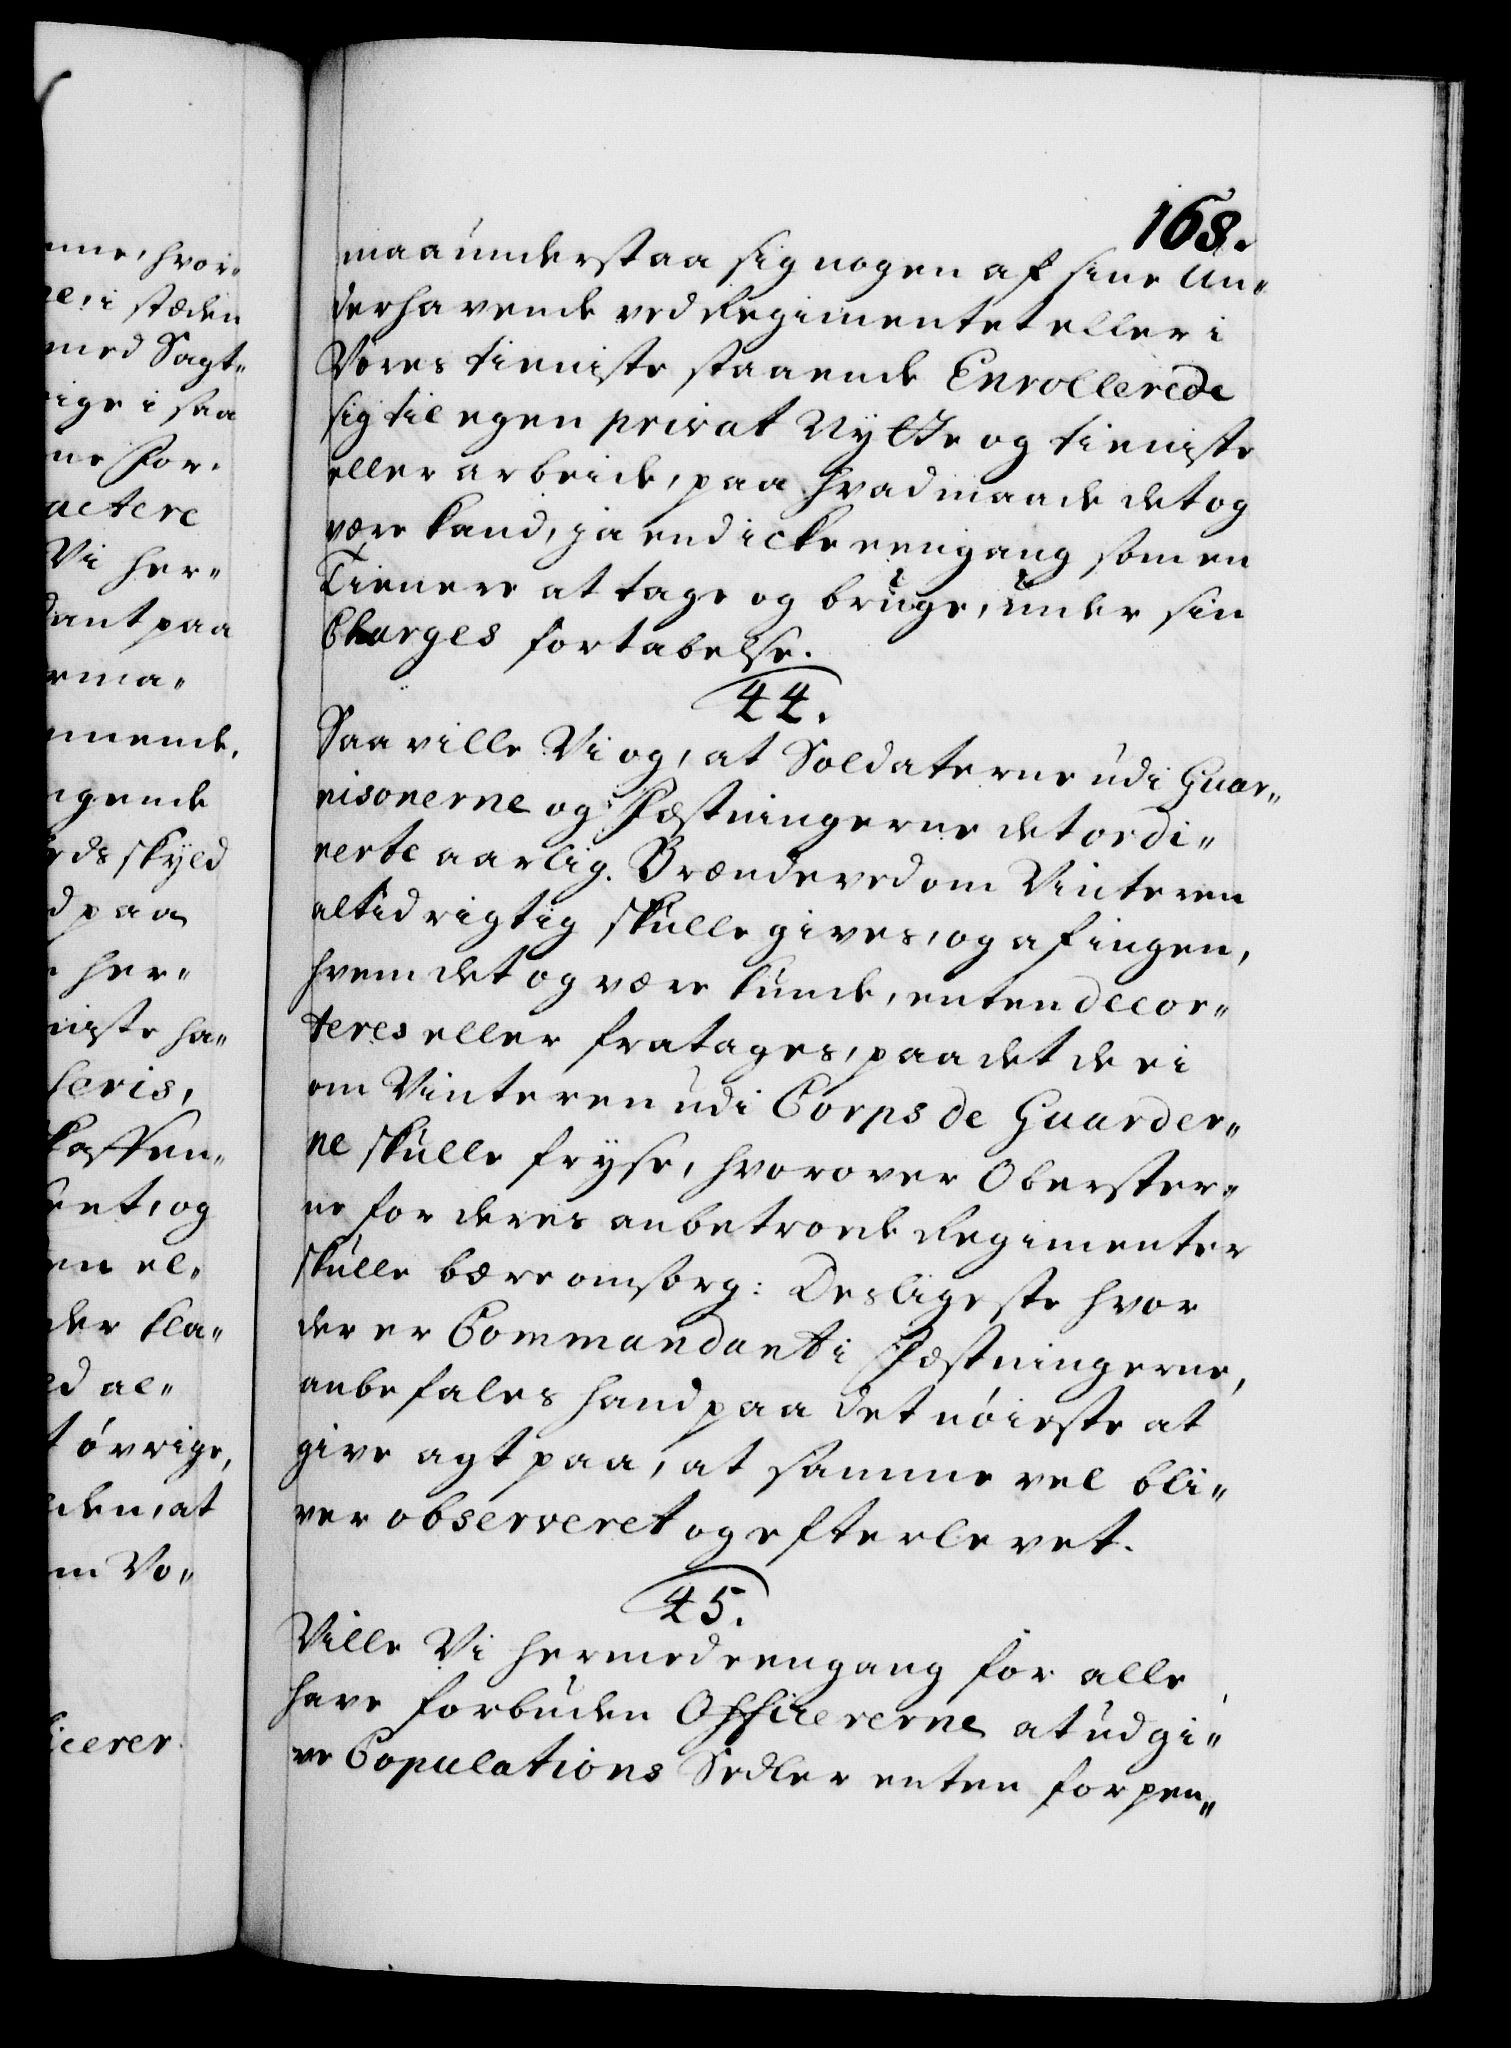 168.
maa understaa sig nogen af sine Un„
derhavende ved Regimentet eller i
Vores tieniste staaende Enrollerede
sig til egen privat Nytte og tieniste
eller arbeide, paa hvad maade det og
være kand, ja end icke eengang som en
Tienere at tage og bruge, under sin
Charges fortabelse.
44.
Saa ville Vi og, at Soldaterne udi Guar„
nisonerne og Fæstningerne det ordi„
nerte aarlig Brændeved om Vinteren
altid rigtig skulle gives, og af ingen,
hvem det og være kunde, enten decor„
teres eller fratages, paa det de ei
om Vinteren udi Corps de Guarder„
ne skulle fryse, hvorover Oberster„
ne for deres anbetroede Regimenter
skulle bære omsorg: Desligeste hvor
der er Commandant i Fæstningerne,
anbefales hand paa det nöieste at
give agt paa, at samme vel bli„
ver observeret og efterlevet.
45.
Ville Vi hermed eengang for alle
have forbuden Officererne at udgi„
ve Copulations Sedler enten for pen„